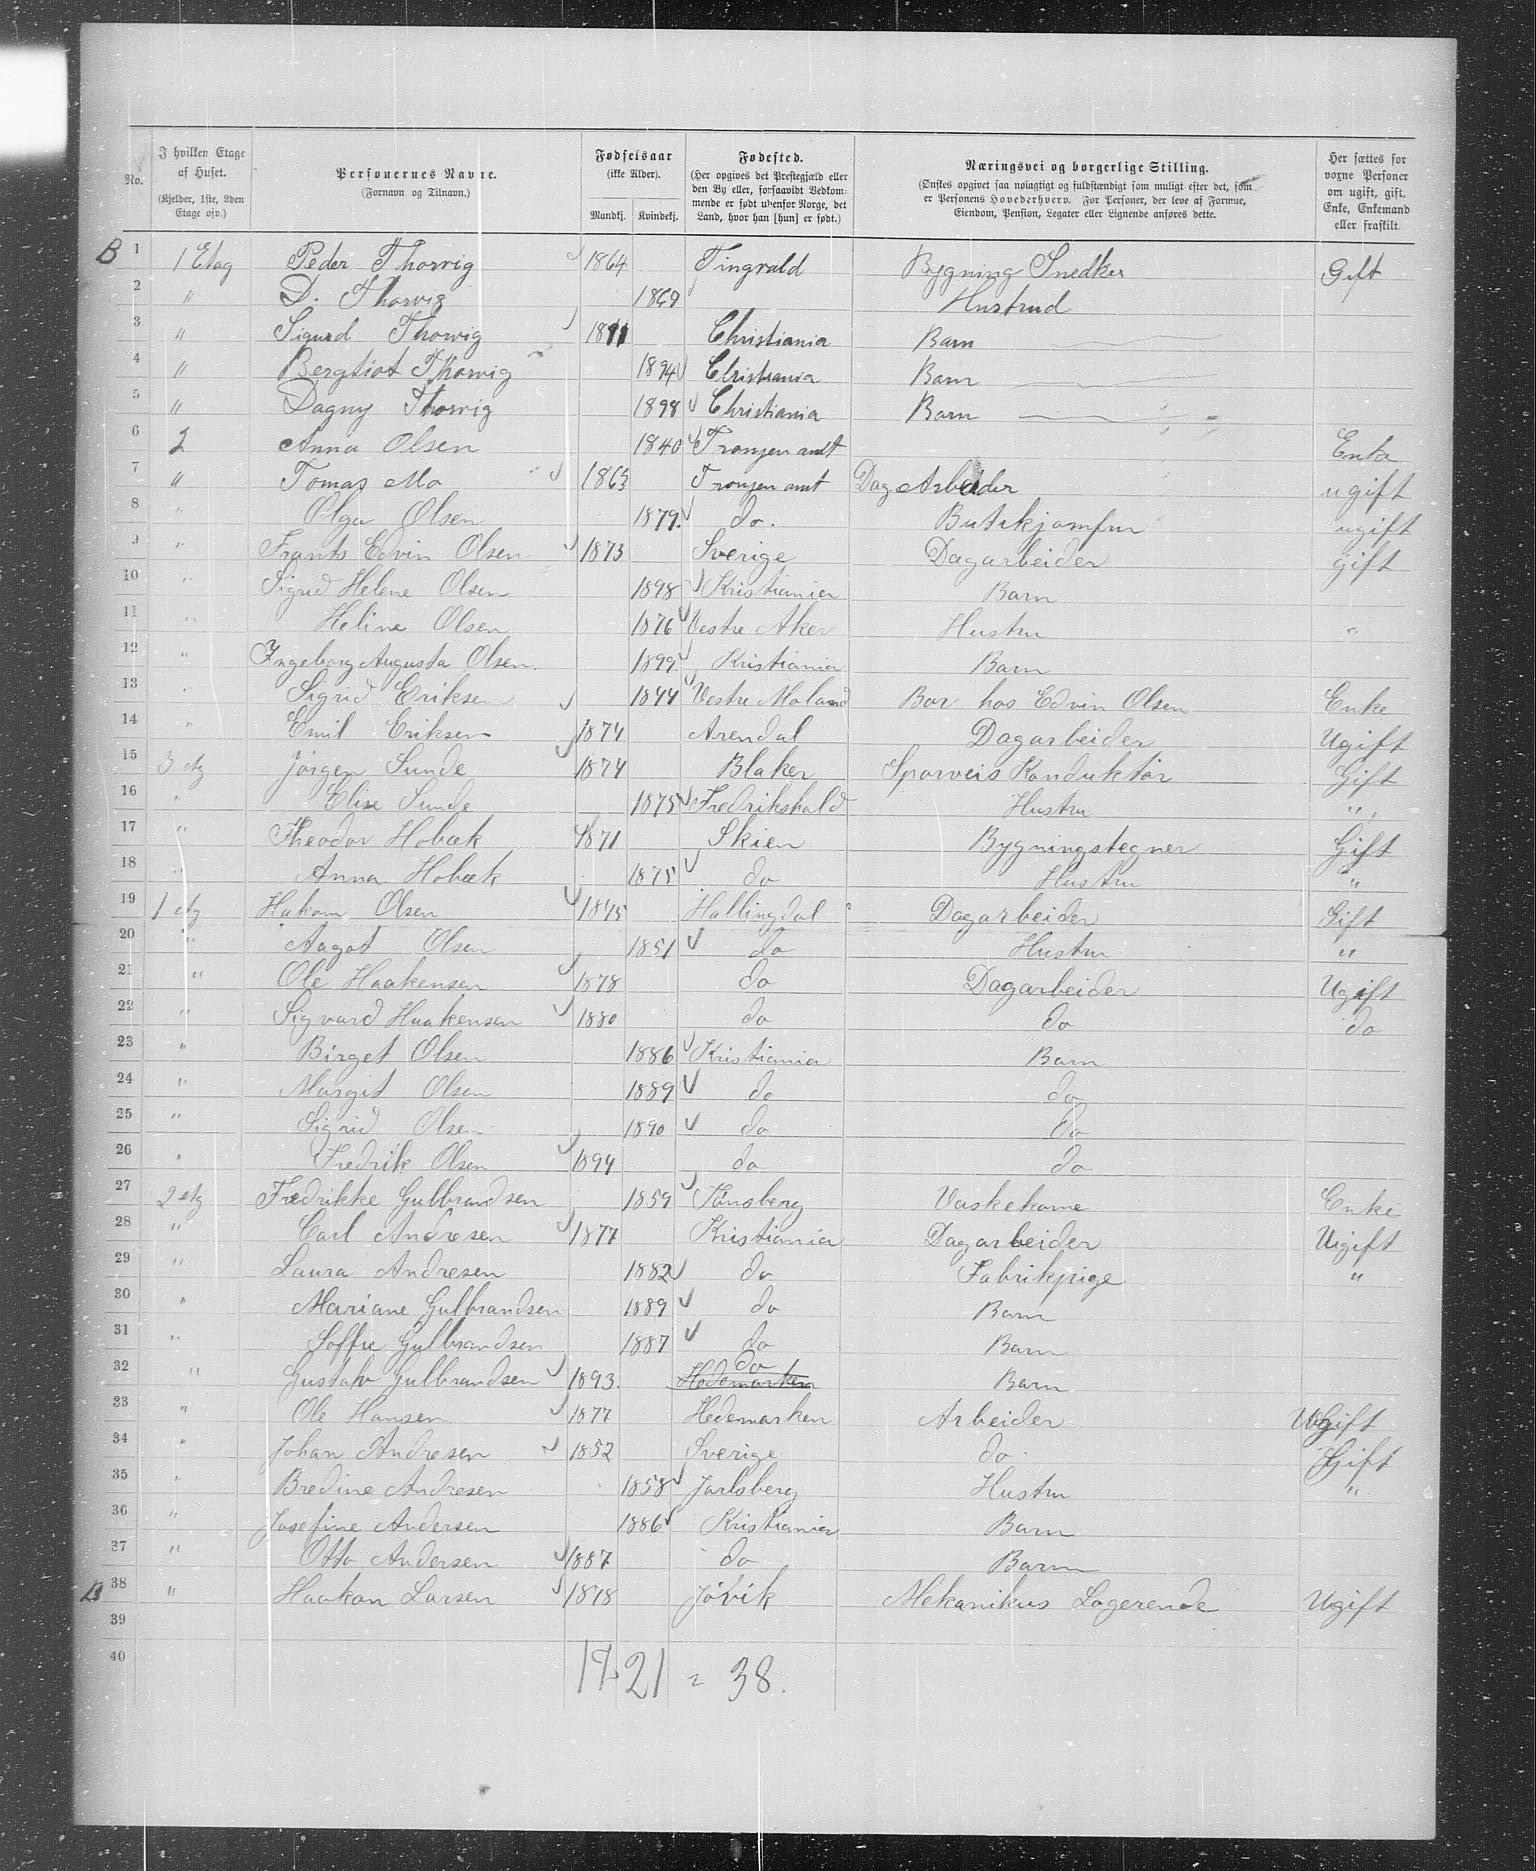 No.
I hvilken Etage af Huset. (Kjelder, 1ste, 2den Etage osv.)
Personernes Navne. (Fornavn og Tilnavn.)
Fødselsaar (ikke Alder). Mandkj. Kvindekj.
Fødested. (Her opgives det Prestegjæld eller den By eller, forsaavidt Vedkommende er født udenfor Norge, det Land, hvor han [hun] er født.)
Næringsvei og borgerlige Stilling. (Ønskes opgivet saa nøiagtigt og fuldstændigt som muligt efter det, som er Personens Hovederhverv. For Personer, der leve af Formue, Eiendom, Pension, Legater eller Lignende anføres dette.
Her sættes for voxne Personer om ugift, gift, Enke, Enkemand eller fraskilt.
B 1 1 Etag Peder Thorvig 1864 Tingvald Bygning Snedker Gift
2 " D. Thorvig 1869 Hustrud
3 " Sigurd Thorvig 1891 Christiania Barn
4 " Bergliot Thorvig 1894 Christiania Barn
5 " Dagny Thorvig 1898 Christiania Barn
6 2 Anna Olsen 1840 Tromsen amt Enke
7 " Tomas Mo 1863 Tromsen amt Dag Arbeider ugift
8 " Olga Olsen 1879 do. Butikjomfru ugift
9 " Frants Edvin Olsen 1873 Sverige Dagarbeider gift
10 " Sigrid Helene Olsen 1898 Kristiania Barn
11 " Heline Olsen 1876 Vestre Aker Hustru "
12 " Ingeborg Augusta Olsen 1899 Kristiania Barn
13 " Sigrid Eriksen 1844 Vestre Moland Bor hos Edvin Olsen Enke
14 " Emil Eriksen 1874 Arendal Dagarbeider Ugift
15 3 etg Jørgen Sunde 1874 Blaker Sporveis Konduktør Gift
16 " Elise Sunde 1875 Fredrikshald Hustru "
17 " Theodor Hobæk 1871 Skien Bygningstegner Gift
18 " Anna Hobæk 1875 do Hustru "
19 1 etg Hakon Olsen 1845 Hallingdal Dagarbeider Gift
20 " Aagot Olsen 1851 do Hustru "
21 " Ole Haakensen 1878 do Dagarbeider Ugift
22 " Sigvard Haakensen 1880 do do do
23 " Birget Olsen 1886 Kristiania Barn
24 " Margit Olsen 1889 do do
25 " Sigrid Olsen 1890 do do
26 " Fredrik Olsen 1894 do do
27 2 etg Fredrikke Gulbrandsen 1859 Tønsberg Vaskekone Enke
28 " Carl Andresen 1877 Kristiania Dagarbeider Ugift
29 " Laura Andresen 1882 do Fabrikpige "
30 " Mariane Gulbrandsen 1889 do Barn
31 " Soffie Gulbrandsen 1887 do Barn
32 " Gustahv Gulbrandsen 1893. do Hedemarken Barn
33 " Ole Hansen 1877 Hedemarken Arbeider Ugift
34 " Johan Andresen 1852 Sverige do Gift
35 " Bredine Andresen 1858 Jarlsberg Hustru "
36 " Josefine Andersen 1886 Kristiania Barn
37 " Otto Andersen 1887 do Barn
B 38 " Haakon Larsen 1878 Jövik Mekanikus Logerende Ugift
39
40
17 21 = 38.